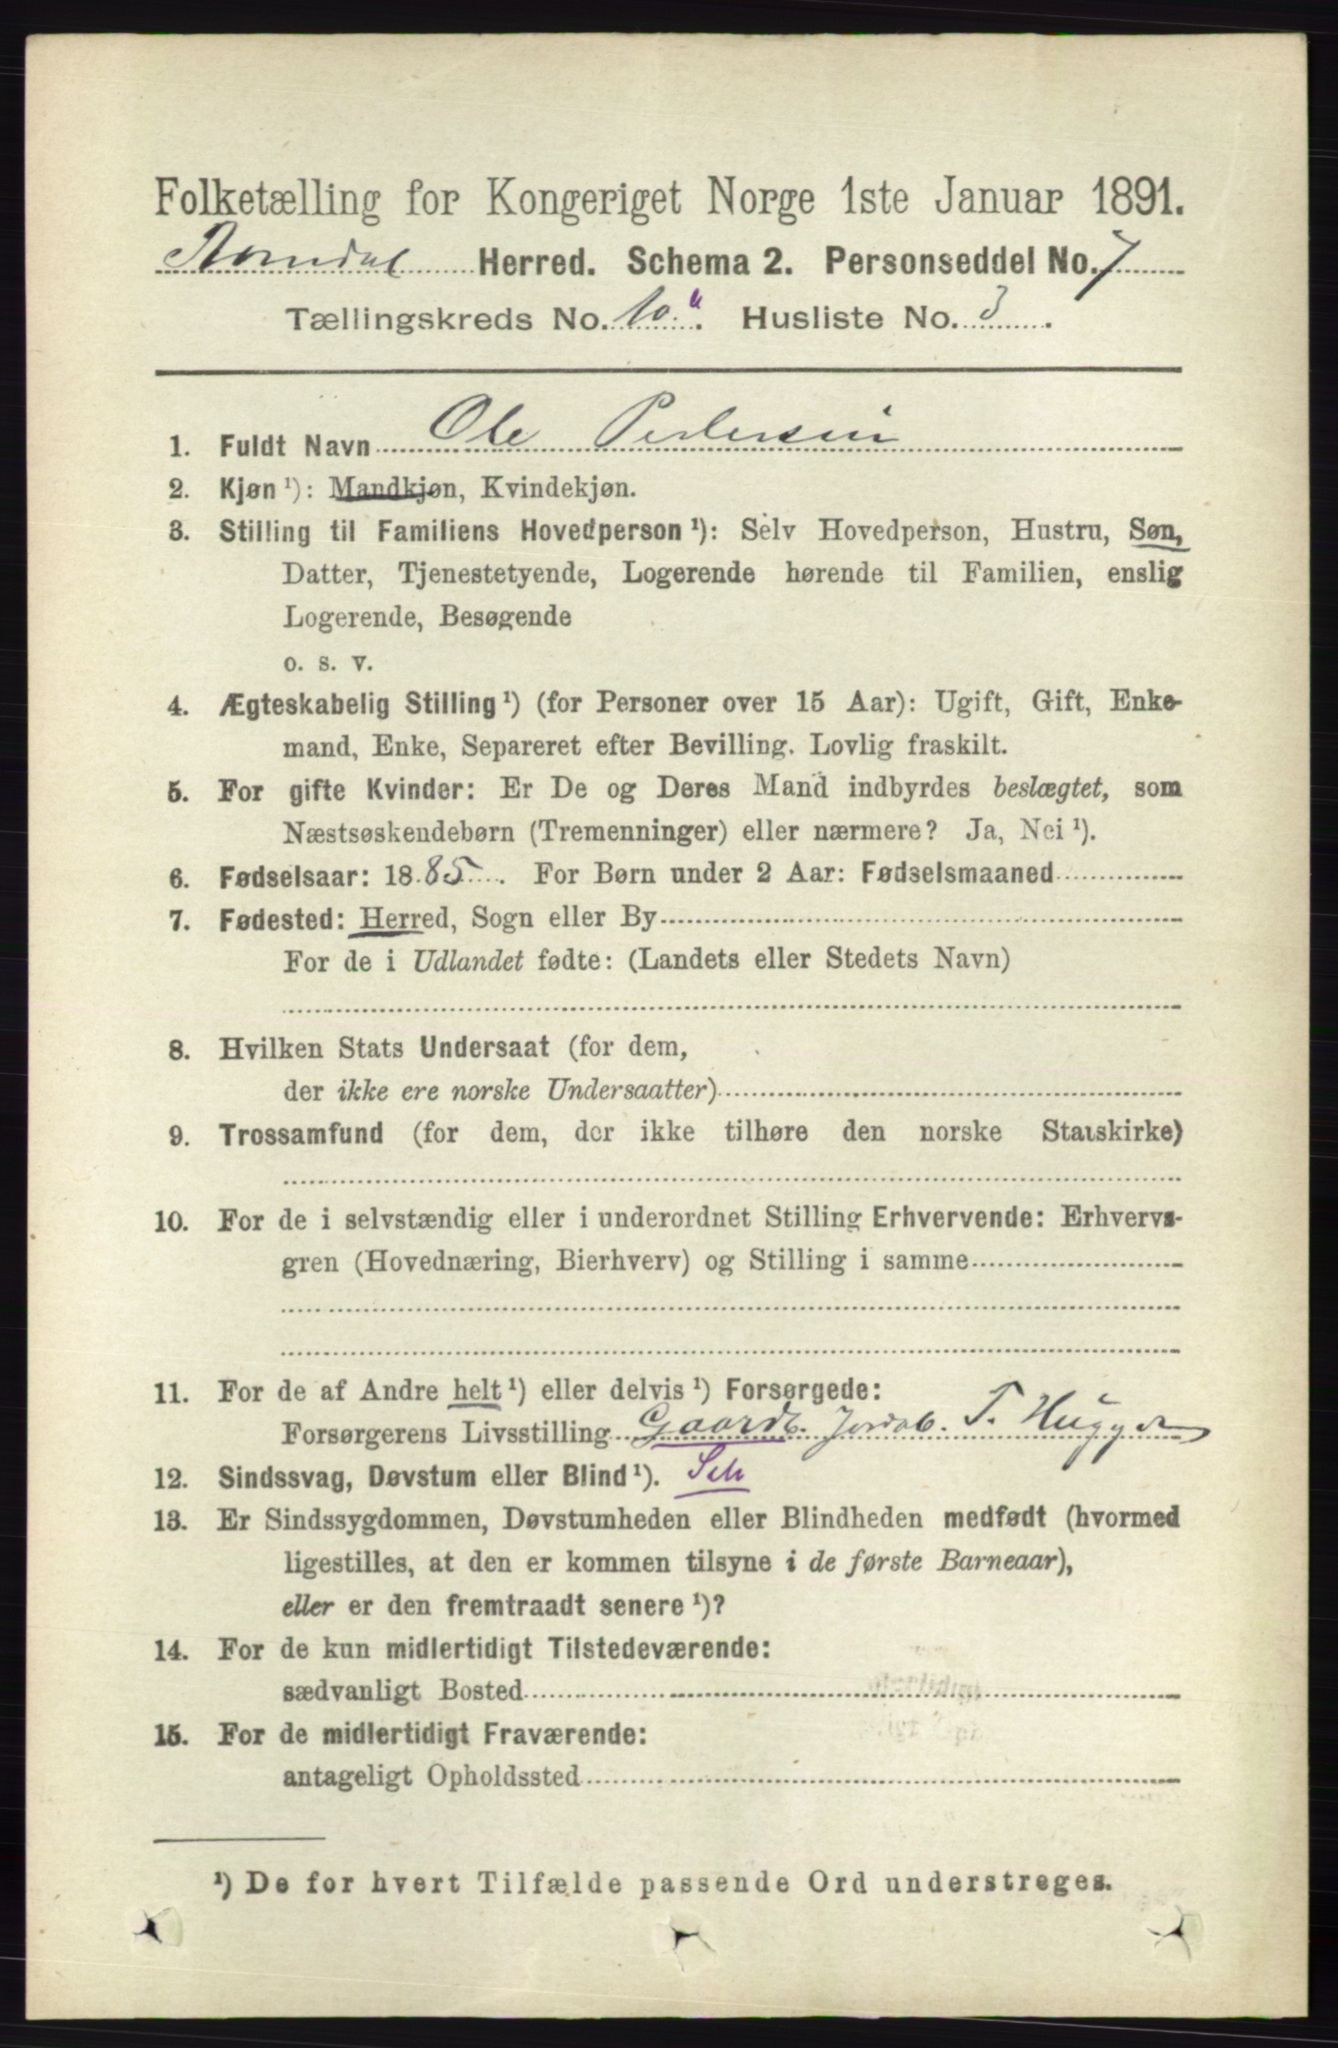 Folketælling for Kongeriget Norge 1ste Januar 1891.
Herred. Schema 2. Personseddel No. 7
Tællingskreds No. 10 a. Husliste No. 3.
1. Fuldt Navn Ole Pedersen
2. Kjøn ¹): Mandkjøn, Kvindekjøn.
3. Stilling til Familiens Hovedperson ¹): Selv Hovedperson, Hustru, Søn,
Datter, Tjenestetyende, Logerende hørende til Familien, enslig
Logerende, Besøgende
o. s. v.
4. Ægteskabelig Stilling ¹) (for Personer over 15 Aar): Ugift, Gift, Enke-
mand, Enke, Separeret efter Bevilling. Lovlig fraskilt.
5. For gifte Kvinder: Er De og Deres Mand indbyrdes beslægtet, som
Næstsøskendebørn (Tremenninger) eller nærmere? Ja, Nei ¹).
6. Fødselsaar: 1885. For Børn under 2 Aar: Fødselsmaaned
7. Fødested: Herred, Sogn eller By
For de i Udlandet fødte: (Landets eller Stedets Navn)
8. Hvilken Stats Undersaat (for dem,
der ikke ere norske Undersaatter)
9. Trossamfund (for dem, der ikke tilhøre den norske Statskirke)
10. For de i selvstændig eller i underordnet Stilling Erhvervende: Erhvervs-
gren (Hovednæring, Bierhverv) og Stilling i samme
11. For de af Andre helt ¹) eller delvis ¹) Forsørgede:
Forsørgerens Livsstilling Gaardb.
12. Sindssvag, Døvstum eller Blind ¹).
13. Er Sindssygdommen, Døvstumheden eller Blindheden medfødt (hvormed
ligestilles, at den er kommen tilsyne i de første Barneaar),
eller er den fremtraadt senere ¹)?
14. For de kun midlertidigt Tilstedeværende:
sædvanligt Bosted
15. For de midlertidigt Fraværende:
antageligt Opholdssted
¹) De for hvert Tilfælde passende Ord understreges.